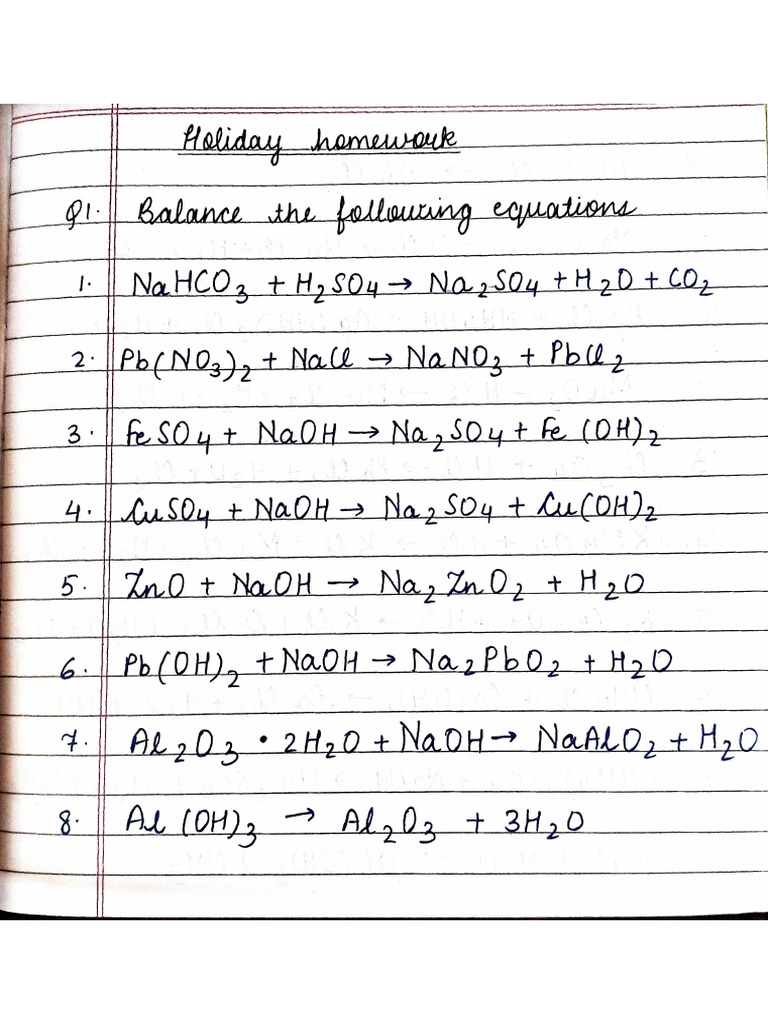 Holiday homework
Q1. Balance the following equations
1. NaHCO3 + H2SO4 → Na2SO4 + H2O + CO2
2. Pb(NO3)2 + NaCl → NaNO3 + PbCl2
3. FeSO4 + NaOH → Na2SO4 + Fe (OH)2
4. CuSO4 + NaOH → Na2SO4 + Cu(OH)2
5. ZnO + NaOH → Na2ZnO2 + H2O
6. Pb(OH)2 + NaOH → Na2PbO2 + H2O
7. Al2O3 • 2H2O + NaOH → NaAlO2 + H2O
8. Al (OH)3 → Al2O3 + 3H2O